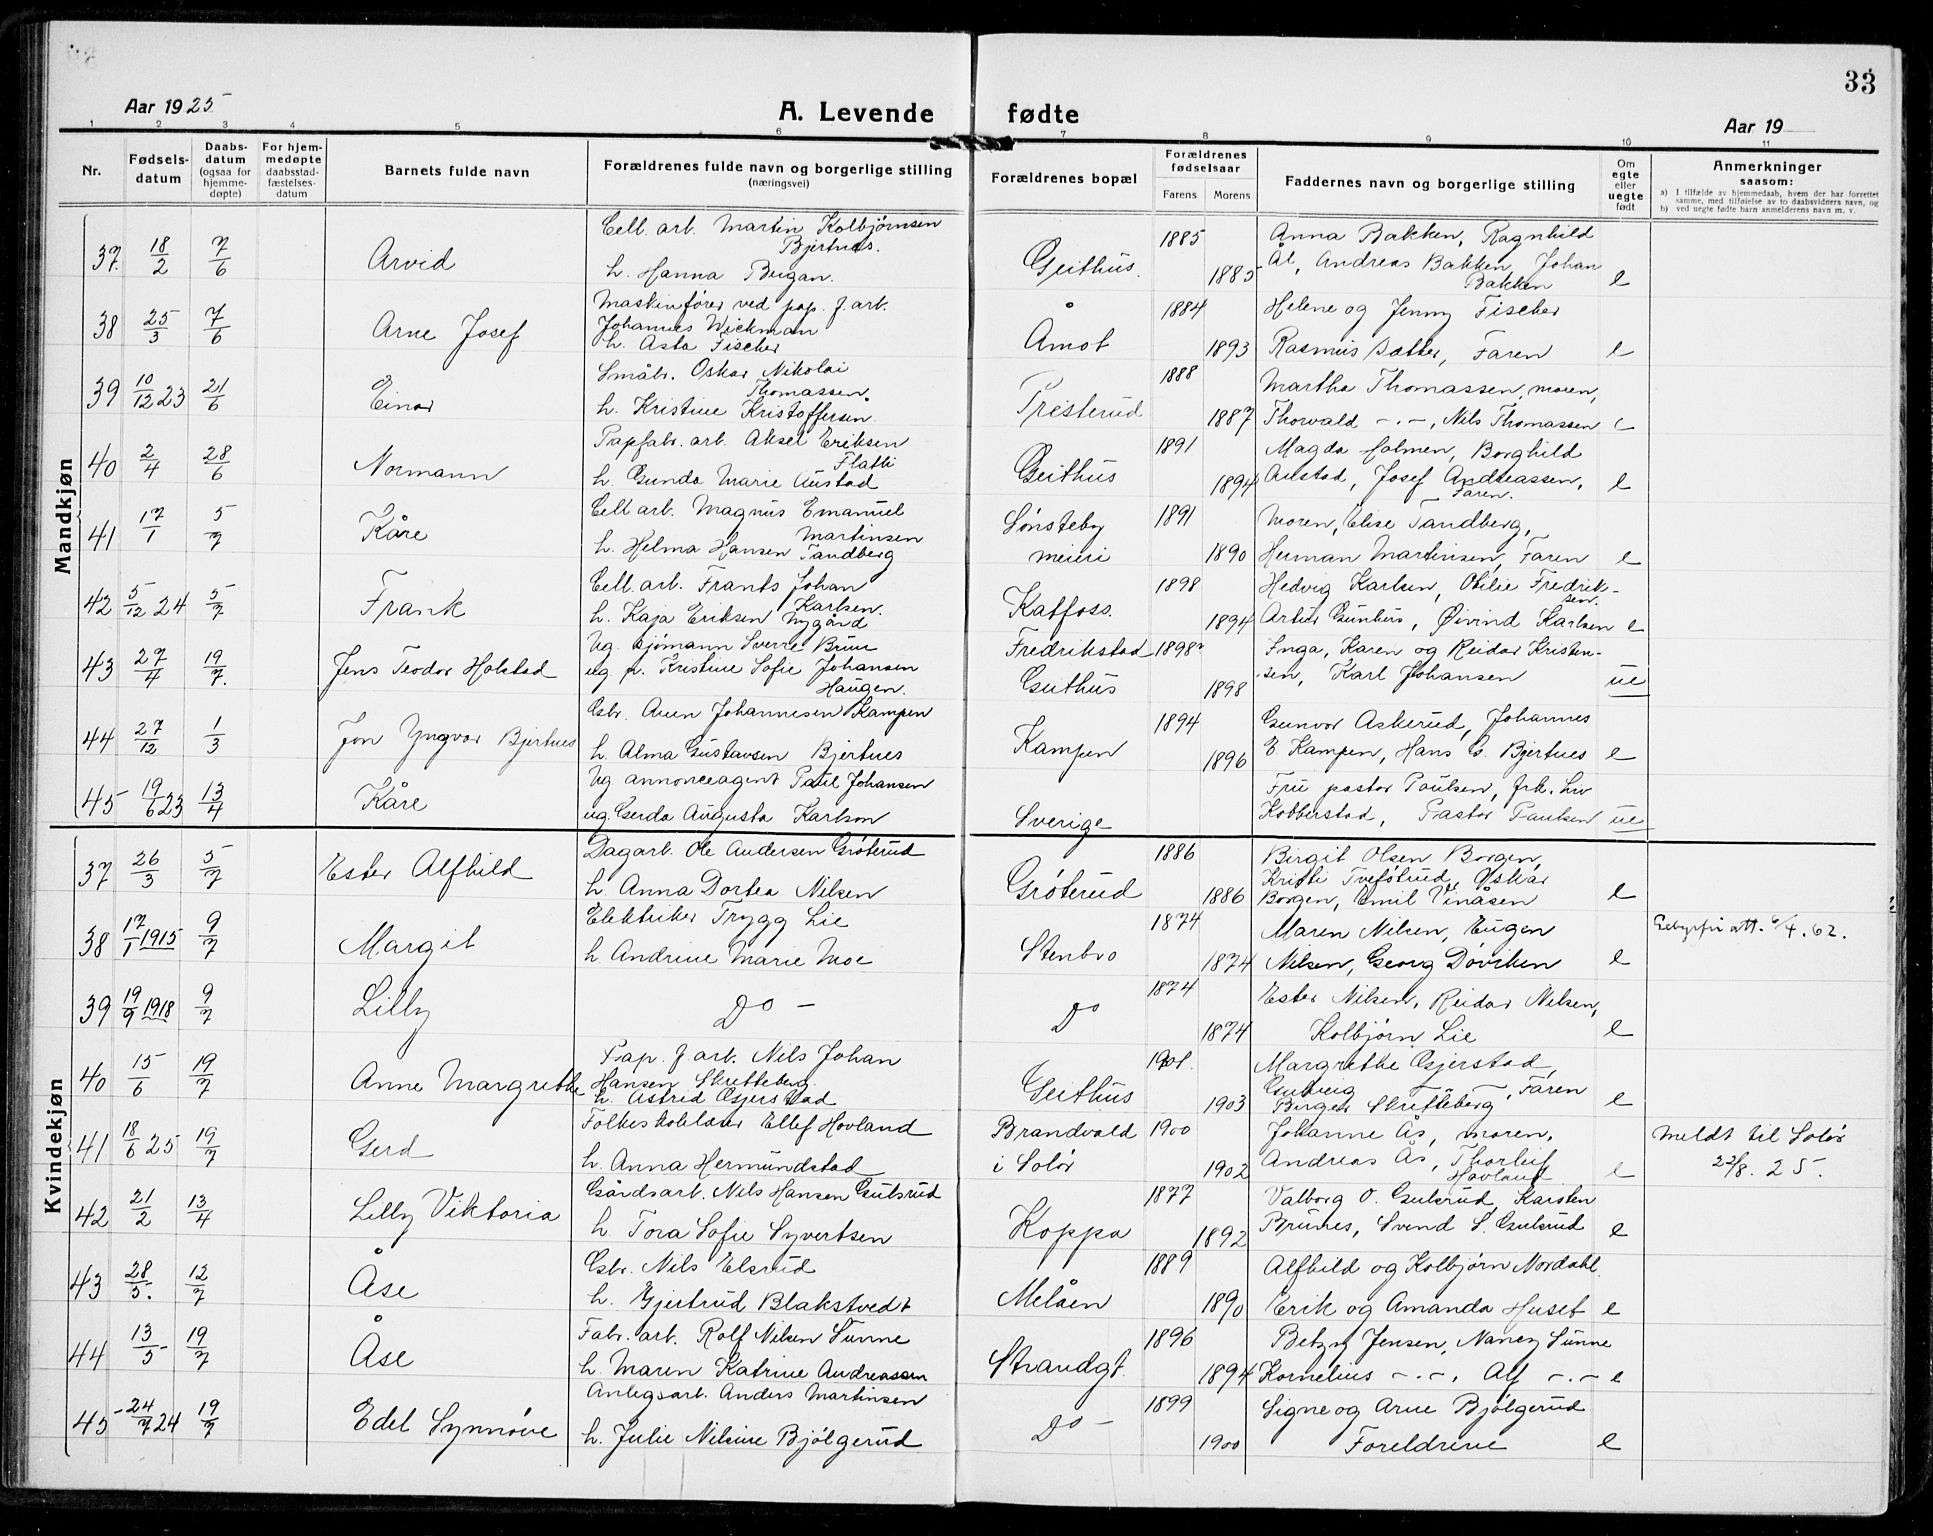 33
Aar 1925
A. Levende fødte
Aar 19
1 2 3 4 5 6 7 8 9 10 11
Nr.
Fødsels-
datum
Daabs-
datum
(ogsaa for
hjemme-
døpte)
For hjem-
medøpte
daabsstad-
fæstelses-
datum
Barnets fulde navn
Forældrenes fulde navn og borgerlige stilling
(næringsvei)
Forældrenes bopæl
Forældrenes
fødselsaar
Farens Morens
Faddernes navn og borgerlige stilling
Om
egte
eller
uegte
født
Anmerkninger
saasom:
a) I tilfælde av hjemmedaab, hvem der har forrettet
samme, med tilføielse av to daabsvidners navn, og
b) ved uegte fødte barn anmelderens navn m. v.
Mandkjøn
37. 18/2 7/6 Arvid
Cell. arb. Martin Kolbjørnsen
Bjertnes.
h. Hanna Beigan.
Geithus. 1885 1885
Anna Bakken, Ragnhild
Ål, Andreas Bakken, Johan
Bakken e
38 25/3 7/6 Arne Josef
Maskinfører ved pap. f. arb.
Johannes Wickman
h. Asta Fischer
Åmot 1884 1893
Helene og Jenny Fischer
Rasmus Sætter, Faren e
39 10/12 23 21/6 Einar
Småbr. Oskar Nikolai
Thomassen.
h. Kristine Kristoffersen.
Presterud 1888 1887
Martha Thomassen, moren,
Thorvald -.-, Nils Thomassen e
40 2/4 28/6 Normann
Papfabr. arb. Aksel Eriksen
Flatti
h. Gunda Marie Austad
Geithus 1891 1894
Magda Holmen, Borghild
Austad, Josef Andreassen,
Faren. e
41 17/1 5/7 Kåre
Cell arb. Magnus Emanuel
Martinsen
h. Helma Hansen Tandberg
Sønsteby
meieri 1891 1890
Moren, Elise Tandberg,
Herman Martinsen, Faren e
42 5/12 24 5/7 Frank
Cell. arb. Frants Johan
Karlsen.
h. Kaja Eriksen Nygård
Katfoss. 1898 1894
Hedvig Karlsen, Otilie Fredrik-
sen.
Artur Gunhus, Øivind Karlsen e
43 27/4 19/7. Jens Teodor Holstad
Ug. sjømann Sverre Bruu
ug. p. Kristine Sofie Johansen
Haugen.
Fredrikstad
Geithus 1898? 1898
Inga, Karen og Reidar Kristen-
sen, Karl Johansen ue
44 27/12 1/3 Jon Yngvar Bjertnes
Gbr. Auen Johannesen Kampen
h. Alma Gustavsen Bjertnes
Kampen 1894 1896
Gunvor Askerud, Johannes
E. Kampen, Hans G. Bjertnes e
45 19/6 23 13/4 Kåre
Ug annonceagent Paul Johansen
ug. Gerda Augusta Karlson
Sverige
Fru pastor Paulsen, frk. Liv
Kobberstad, Pastor Paulsen ue
Kvindekjøn
37 26/3 5/7 Ester Alfhild
Dagarb. Ole Andersen Grøterud
h. Anna Dortea Nilsen
Grøterud 1886 1886
Birgit Olsen Borgen,
Kristi Tveføtrud, Oskar
Borgen, Emil Vinåsen e
38 17/1 1915 9/7 Margit
Elektriker Trygg Lie
h. Andrine Marie Moe
Stenbro 1874 1874
Maren Nilsen, Eugen
Nilsen, Georg Døviken e
Gebyrfri att. 6/4. 62.
39 19/9 1918 9/7 Lilly
Do -
Do 1874 1874
Ester Nilsen, Reidar Nilsen,
Kolbjørn Lie e
40 15/6 19/7 Anne Margrethe
Pap. f. arb. Nils Johan
Hansen Skretteberg.
h. Astrid Gjerstad
Geithus 1901. 1903
Margrethe Gjerstad,
Gudveig -"-, Faren
Birger Skretteberg e
41 18/6 25 19/7 Gerd
Folkeskolelærer Ellef Hovland
h. Anna Hermundstad
Brandvald
i Solør 1900 1902
Johanne Ås, moren,
Andreas Ås, Thorleif
Hovland e
Meldt til Solør
22/8. 25.
42 21/2 13/4 Lilly Viktoria
Gårdsarb. Nils Hansen Gulsrud
h. Tora Sofie Syvertsen
Koppa 1877 1892
Valborg O. Gulsrud, Karsten
Brunes, Svend S. Gulsrud e
43 28/5. 12/7 Åse
Gbr. Nils Elsrud
h. Gjertrud Blakstvedt
Melåen 1889 1890
Alfhild og Kolbjørn Nordahl.
Erik og Amanda Huset e
44 13/5 19/7 Åse
Fabr. arb. Rolf Nilsen Sunne
h. Maren Katrine Andreassen
Strandgt. 1896 1894
Betzy Jensen, Nancy Sunne
Kornelius -.-, Alf -.- e
45 24/7 24 19/7 Edel Synnøve
Anlegsarb. Anders Martinsen
h. Julie Nilsine Bjølgerud
Do - 1899 1900
Signe og Arne Bjølgerud
Foreldrene e